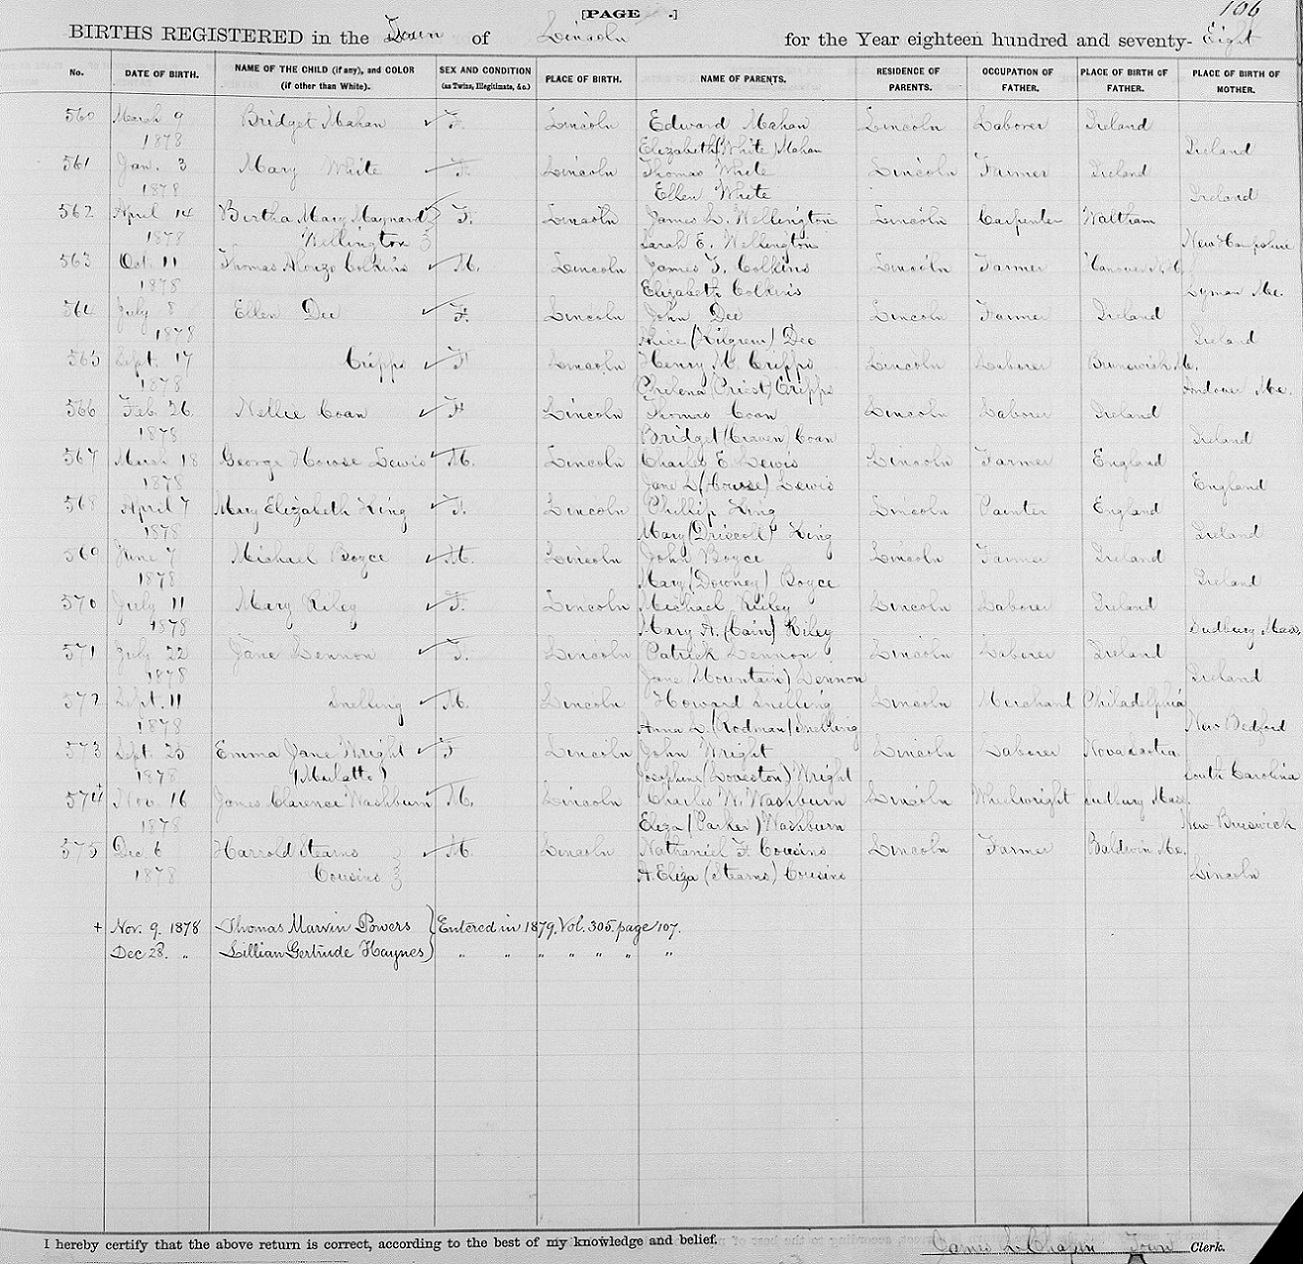 [PAGE .] 106
BIRTHS REGISTERED in the Town of Lincoln for the Year eighteen hundred and seventy- Eight
No. DATE OF BIRTH. NAME OF THE CHILD (if any), and COLOR (if other than White). SEX AND CONDITION (as Twins, Illegitimate, &c.) PLACE OF BIRTH. NAME OF PARENTS. RESIDENCE OF PARENTS. OCCUPATION OF FATHER. PLACE OF BIRTH OF FATHER. PLACE OF BIRTH OF MOTHER.
560 March 9 Bridget Mahan ✓ F. Lincoln Edward Mahan Lincoln Laborer Ireland
1878 Elizabeth (White) Mahan Ireland
561 Jan. 3 Mary White F. Lincoln Thomas White Lincoln Farmer Ireland
1878 Ellen White Ireland
562 April 14 Birtha Mary Maynard F. Lincoln James L. Wellington Lincoln Carpenter Waltham
1878 Wellington Sarah E. Wellington New Hampshire
563 Oct. 11 Thomas Alonzo Colkins ✓ M. Lincoln James T. Colkins Lincoln Farmer
1878 Elizabeth Colkins Lyman Me.
564 July 8 Ellen Dee ✓ F. Lincoln John Dee Lincoln Farmer Ireland
1878 Alice (Kilgrew) Dee Ireland
565 Sept. 17 Cripps ✓ F Lincoln Henry M. Cripps Lincoln Laborer Brunswick Me.
1878 (Priest) Cripps Andover Me.
566 Feb. 26 Nellie Coan ✓ F Lincoln Thomas Coan Lincoln Laborer Ireland
1878 Bridget (Craven) Coan Ireland
567 March 18 George Howse Lewis ✓ M. Lincoln Charles E. Lewis Lincoln Farmer England
1878 Jane L (Howse) Lewis England
568 April 7 Mary Elizabeth King ✓ F. Lincoln Phillip King Lincoln Painter England
1878 Mary (Driscoll) King Ireland
569 June 7 Michael Boyce ✓ M. Lincoln John Boyce Lincoln Farmer Ireland
1878 Mary (Downey) Boyce Ireland
570 July 11 Mary Riley ✓ F. Lincoln Michael Riley Lincoln Laborer Ireland
1878 Mary A. (Cain) Riley Sudbury Mass.
571 July 22 Jane Lennon ✓ F. Lincoln Patrick Lennon Lincoln Laborer Ireland
1878 Jane (Mountain) Lennon Ireland
572 Sept. 11 Snelling ✓ M. Lincoln Howard Snelling Lincoln Merchant Philadelphia
1878 Anna L. (Rodman) Snelling New Bedford
573 Sept. 25 Emma Jane Wright ✓ F Lincoln John Wright Lincoln Laborer Nova Scotia
1878 (Mulatto) Josephine (Loveston) Wright South Carolina
574 Nov. 16 James Clarence Washburn ✓ M. Lincoln Charles W. Washburn Lincoln Wheelwright Sudbury Mass.
1878 Eliza (Parker) Washburn New Brunswick
575 Dec 6 Harrold Stearns ✓ M. Lincoln Nathaniel F. Cousins Lincoln Farmer Baldwin Me.
1878 Cousins A. Eliza (Stearns) Cousins Lincoln
+ Nov. 9. 1878 Thomas Marvin Powers } Entered in 1879, Vol. 305. page 107.
Dec 28. „ Lillian Gertrude Haynes } „ „ „ „ „ „ „
I hereby certify that the above return is correct, according to the best of my knowledge and belief.
James L. Chapin Town Clerk.